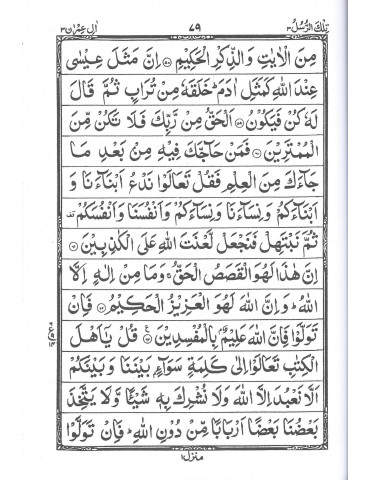 تِلْكَ الرُّسُلُ ٣ ٧٩ اٰلِ عِمْرٰن ٣
مِنَ الْاٰيٰتِ وَالذِّكْرِ الْحَكِيْمِ ۝٥٨ اِنَّ مَثَلَ عِيْسٰى
عِنْدَ اللّٰهِ كَمَثَلِ اٰدَمَ ؕ خَلَقَهٗ مِنْ تُرَابٍ ثُمَّ قَالَ
لَهٗ كُنْ فَيَكُوْنُ ۝٥٩ اَلْحَقُّ مِنْ رَّبِّكَ فَلَا تَكُنْ مِّنَ
الْمُمْتَرِيْنَ ۝٦٠ فَمَنْ حَآجَّكَ فِيْهِ مِنْۢ بَعْدِ مَا
جَآءَكَ مِنَ الْعِلْمِ فَقُلْ تَعَالَوْا نَدْعُ اَبْنَآءَنَا وَ
اَبْنَآءَكُمْ وَنِسَآءَنَا وَنِسَآءَكُمْ وَاَنْفُسَنَا وَاَنْفُسَكُمْ قف
ثُمَّ نَبْتَهِلْ فَنَجْعَلْ لَّعْنَتَ اللّٰهِ عَلَى الْكٰذِبِيْنَ ۝٦١
اِنَّ هٰذَا لَهُوَ الْقَصَصُ الْحَقُّ ۚ وَمَا مِنْ اِلٰهٍ اِلَّا
اللّٰهُ ؕ وَاِنَّ اللّٰهَ لَهُوَ الْعَزِيْزُ الْحَكِيْمُ ۝٦٢ فَاِنْ
تَوَلَّوْا فَاِنَّ اللّٰهَ عَلِيْمٌۢ بِالْمُفْسِدِيْنَ ۝٦٣ قُلْ يٰۤاَهْلَ
الْكِتٰبِ تَعَالَوْا اِلٰى كَلِمَةٍ سَوَآءٍۢ بَيْنَنَا وَبَيْنَكُمْ
اَلَّا نَعْبُدَ اِلَّا اللّٰهَ وَلَا نُشْرِكَ بِهٖ شَيْـًٔا وَّلَا يَتَّخِذَ
بَعْضُنَا بَعْضًا اَرْبَابًا مِّنْ دُوْنِ اللّٰهِ ؕ فَاِنْ تَوَلَّوْا
منزل ١